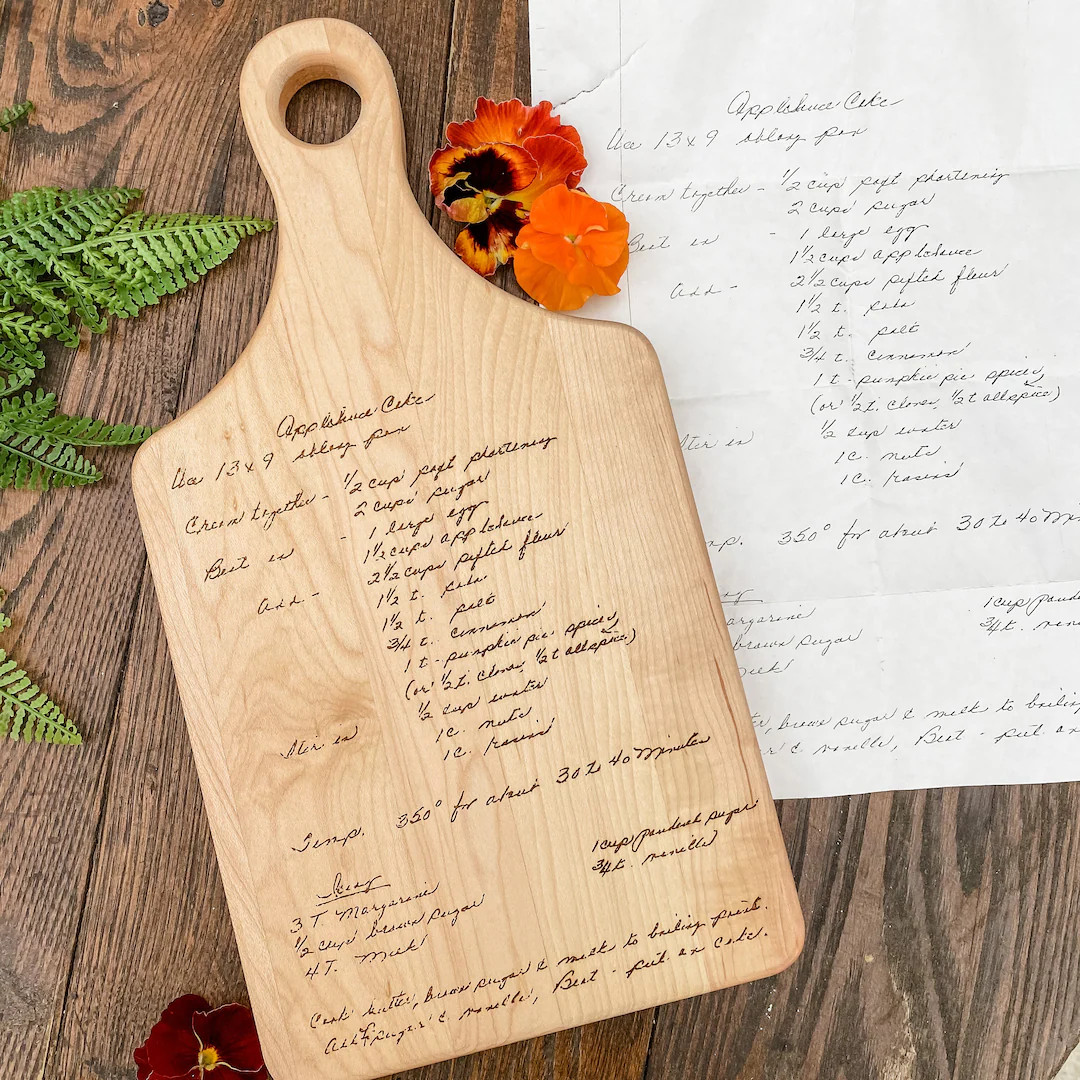 Applesauce Cake
Use 13 x 9 oblong pan
Cream together - 1/2 cup soft shortening
2 cups sugar
Beat in - 1 large egg
1 1/2 cups applesauce
Add - 2 1/2 cups sifted flour
1 1/2 t. soda
1 1/2 t. salt
3/4 t. cinnamon
1 t - pumpkin pie spices
(or 1/2 t. cloves, 1/2 t allspice)
Stir in 1/2 cup water
1 C. nuts
1 C. raisins
Temp. 350° for about 30 to 40 Minutes
Icing
3 T. Margarine
1/2 cup brown sugar
4 T. Milk
1 cup powdered sugar
3/4 t. vanilla
Cook butter, brown sugar & milk to boiling point.
Add sugar & vanilla, Beat - put on cake.
Applesauce Cake
Use 13 x 9 oblong pan
Cream together - 1/2 cup soft shortening
2 cups sugar
Beat in - 1 large egg
1 1/2 cups applesauce
Add - 2 1/2 cups sifted flour
1 1/2 t. soda
1 1/2 t. salt
3/4 t. cinnamon
1 t - pumpkin pie spices
(or 1/2 t. cloves, 1/2 t allspice)
Stir in 1/2 cup water
1 C. nuts
1 C. raisins
350° for about 30 to 40
1 cup
3/4 t.
brown sugar
brown sugar & milk to
& vanilla, Beat - put on